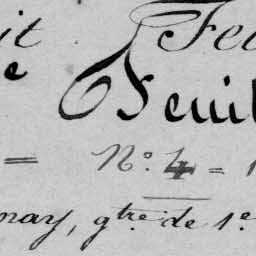 it Feu
e Feuil
= N.o 4 = 1
may, gtre de 1e